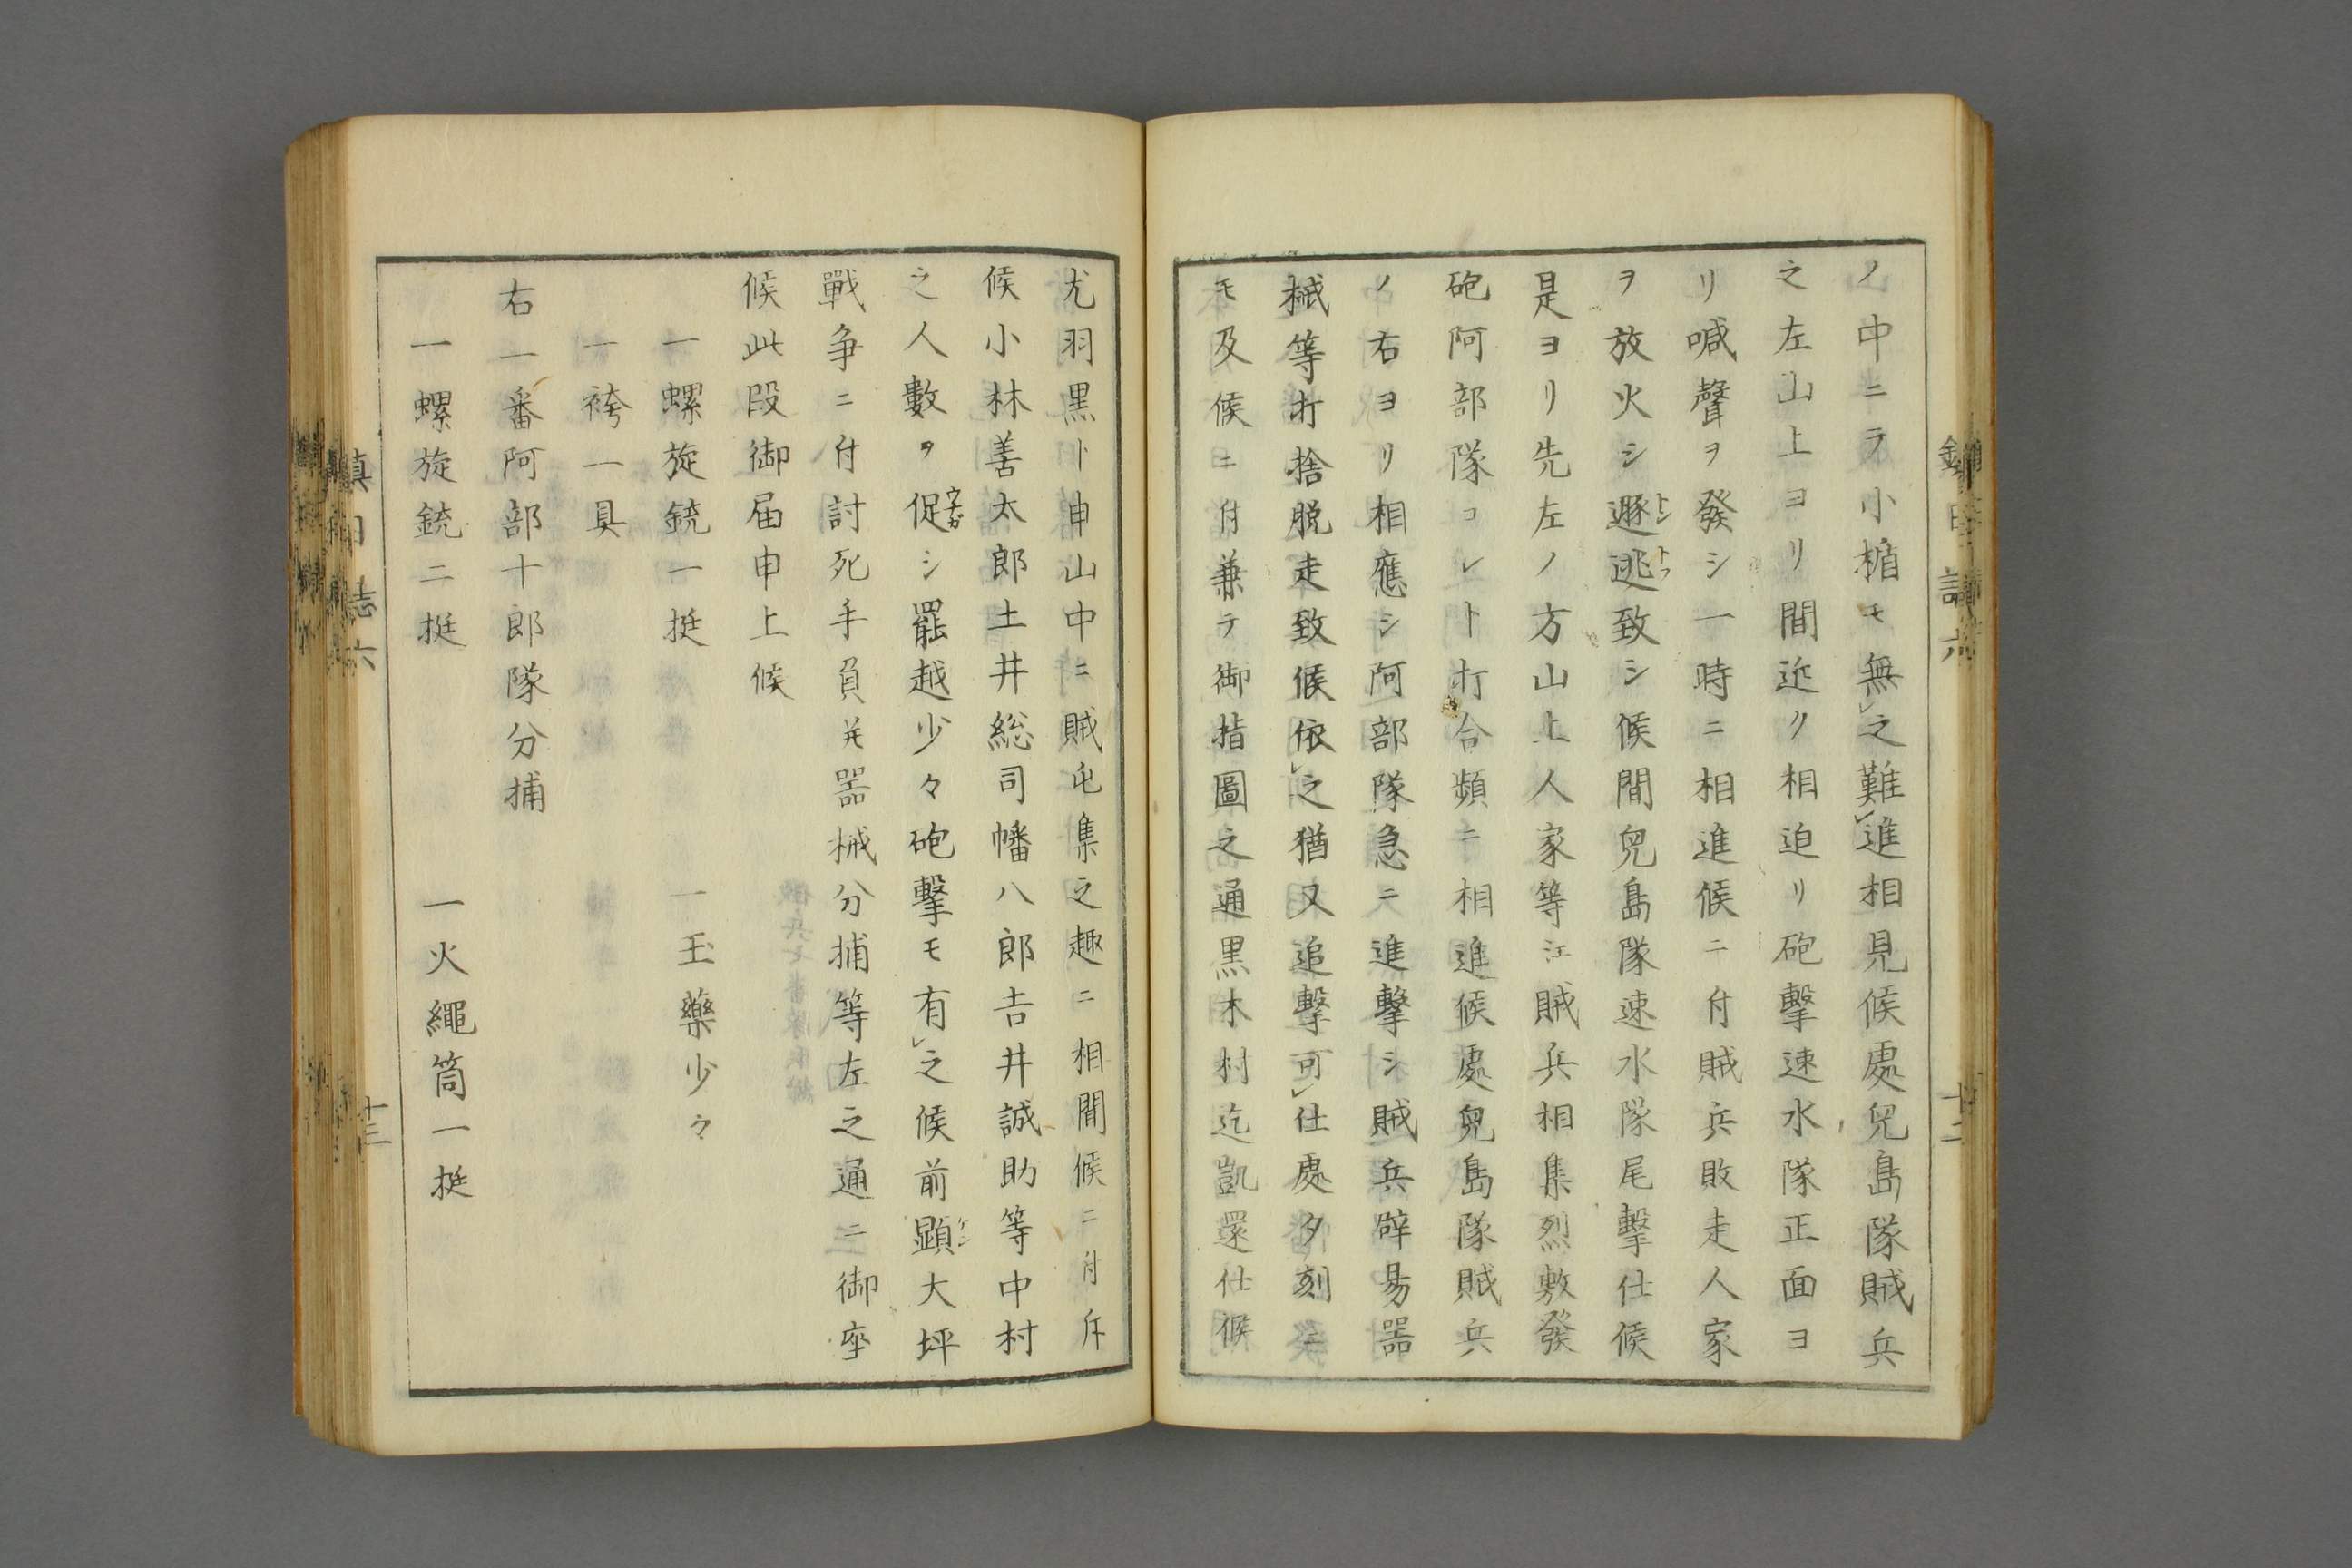 ノ中ニテ小楯モ無レ之難レ進相見候處兒島隊賊兵
之左山上ヨリ間近ク相迫リ砲擊速水隊正面ヨ
リ喊聲ヲ發シ一時ニ相進候ニ付賊兵敗走人家
ヲ放火シ遯逃致シ候間兒島隊速水隊尾擊仕候
是ヨリ先左ノ方山上人家等江賊兵相集烈敷發
砲阿部隊コレト打合頻ニ相進候處兒島隊賊兵
ノ右ヨリ相應シ阿部隊急ニ進擊シ賊兵辟易器
械等打捨脱走致候依レ之猶又追擊可レ仕處夕刻ニ
モ及候ニ付兼テ御指圖之通黒木村迄凱還仕候
尤羽黒ト申山中ニ賊屯集之趣ニ相聞候ニ付斥
候小林善太郎土井総司幡八郎吉井誠助等中村
之人數ヲ促シ罷越少々砲擊モ有レ之候前顕大坪
戰争ニ付討死手負并器械分捕等左之通ニ御座
候此段御届申上候
一螺旋銃一挺　一玉藥少々
一袴一具
右一番阿部十郎隊分捕
一螺旋銃二挺　一火繩筒一挺
鎮日誌六
十三